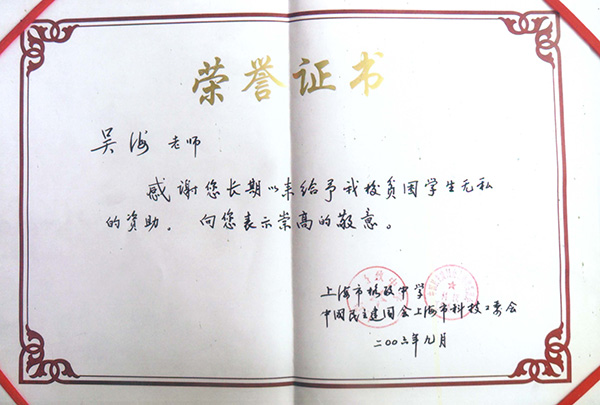 荣誉证书
吴海 老师
感谢您长期以来给予我校贫困学生无私
的资助。向您表示崇高的敬意。
上海市格致中学
中国民主建国会上海市科技工委会
二〇〇六年九月